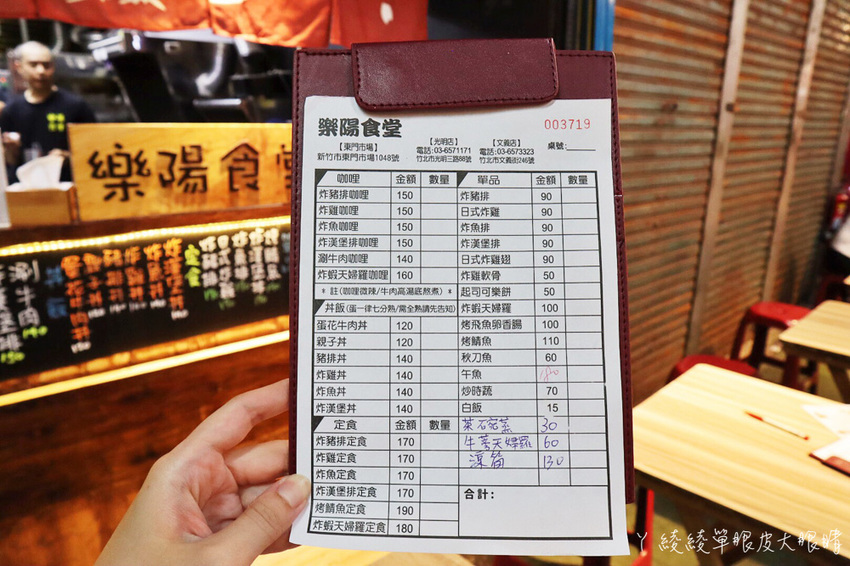 樂陽食堂
003719
【東門市場】
新竹市東門市場1048號
【光明店】
電話:03-6571171
竹北市光明三路88號
【文義店】
電話:03-6573323
竹北市文義街246號
桌號:
咖哩 金額 數量
炸豬排咖哩 150
炸雞咖哩 150
炸魚咖哩 150
炸漢堡排咖哩 150
涮牛肉咖哩 140
炸蝦天婦羅咖哩 160
* 註(咖哩微辣/牛肉高湯底熬煮) *
丼飯(蛋一律七分熟/需全熟請先告知)
蛋花牛肉丼 120
親子丼 120
豬排丼 140
炸雞丼 140
炸魚丼 140
炸漢堡丼 140
定食 金額 數量
炸豬排定食 170
炸雞定食 170
炸魚定食 170
炸漢堡排定食 170
烤鯖魚定食 190
炸蝦天婦羅定食 180
單品 金額 數量
炸豬排 90
日式炸雞 90
炸魚排 90
炸漢堡排 90
日式炸雞翅 90
炸雞軟骨 50
起司可樂餅 50
炸蝦天婦羅 100
烤飛魚卵香腸 100
烤鯖魚 110
秋刀魚 60
午魚 180
炒時蔬 70
白飯 15
茶碗蒸 30
牛蒡天婦羅 60
涼筍 130
合計:
樂陽食堂
涮牛肉
丼飯
定食
ㄚ綾綾單眼皮大眼睛